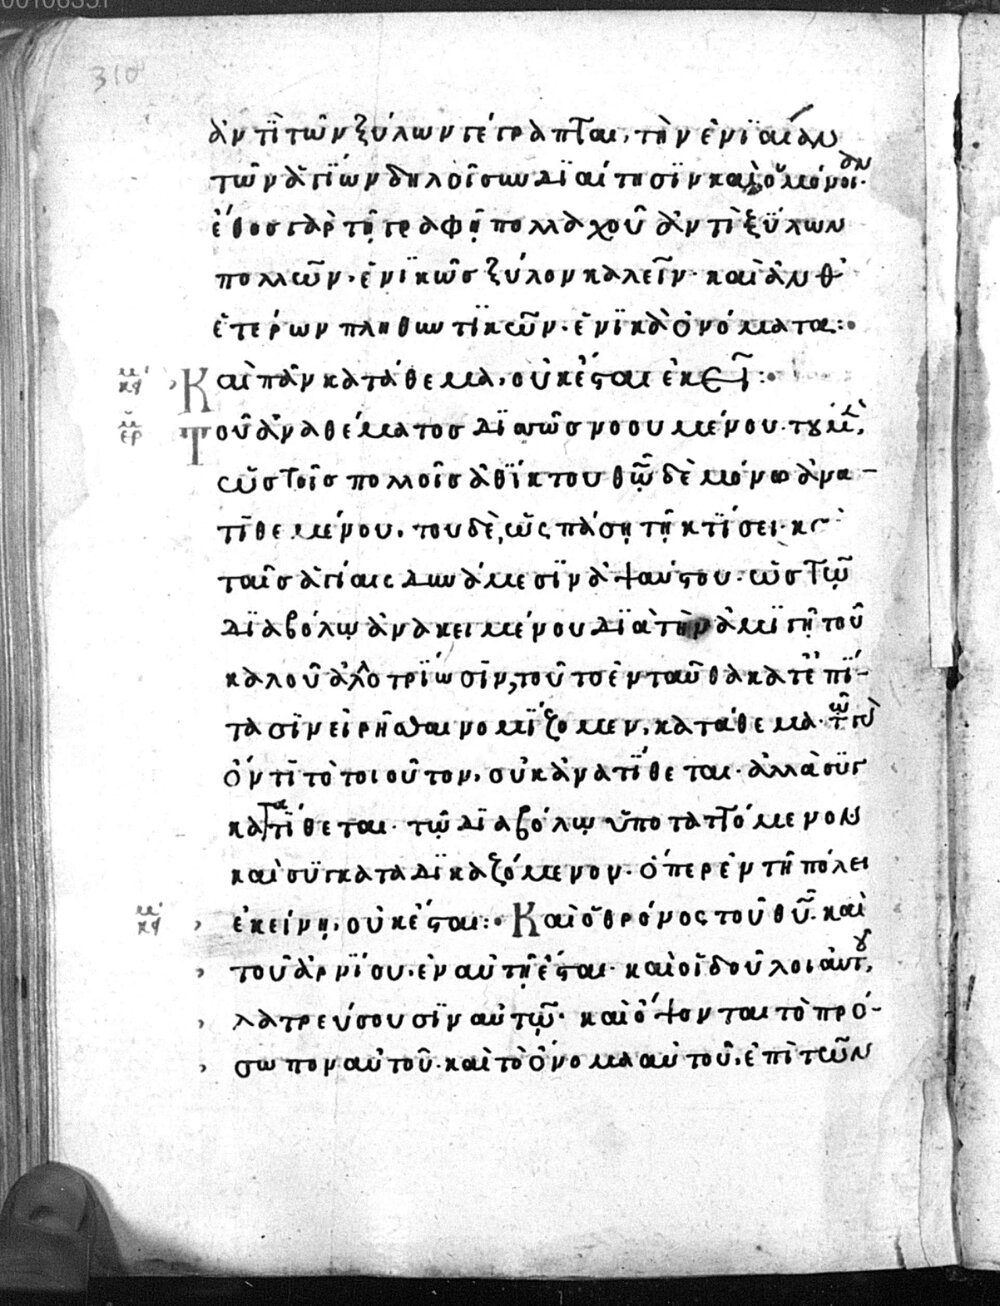 310
ἀντὶ τῶν ξύλων γέγραπται, τὴν ἑνιαίαν
τῶν ἁγίων δηλοῖσων δίαίτησϊν καὶ ὁμόνοιαν·
ἔθος γὰρ τῇ γραφῇ πολλαχοῦ ἀντὶ ξύλων
πολλῶν, ἑνϊκῶς ξύλον καλεῖν· καὶ ἀνθ᾽
ἑτέρων πληθωτϊκῶν· ἑνϊκὰ ὀνόματα:·
κϛ Καὶ πᾶν κατάθεμα, οὐκ ἔσται ἐκεῖ:·
ἑρ Τοῦ ἀναθέματος διπῶς νοουμένου· του μὲν,
ὡς τοῖς πολλοῖς ἀθΐκτου θῷ δὲ μόνω ἀνα-
τιθεμένου, του δὲ, ὡς πάσῃ τῇ κτίσει· κ
ταῖς ἁγίαις δυνάμεσϊν ἀψαύστου· ὡς τῷ
Δϊαβόλῳ ἀνακειμένου διὰ τὴν ἀμϊγῆ τοῦ
καλοῦ ἀλλοτρίωσϊν, τοῦτο ἐνταῦθα κατ᾽ ἐπί-
τασϊν εἰρῆσθαι νομΐζομεν, κατάθεμα· τῷ
ὄντι τὸ τοιοῦτον, οὐκ ἀνατίθεται· ἀλλὰ συγ
κατατίθεται· τῷ Δϊαβόλῳ ὑποταττόμενον
καὶ συγκαταδϊκαζόμενον· ὅπερ ἐν τῇ πόλει
κϛ ἐκείνῃ, οὐκ ἔσται:· Καὶ ὁ θρόνος τοῦ θυ καὶ
τοῦ ἀρνΐου, ἐν αὐτῇ ἔσται· καὶ οἱ δοῦλοι αὐτοῦ,
λατρεύσουσϊν αὐτῷ· καὶ ὄψονται τὸ πρό-
σωπον αὐτοῦ· καὶ τὸ ὄνομα αὐτοῦ, ἐπὶ τῶν